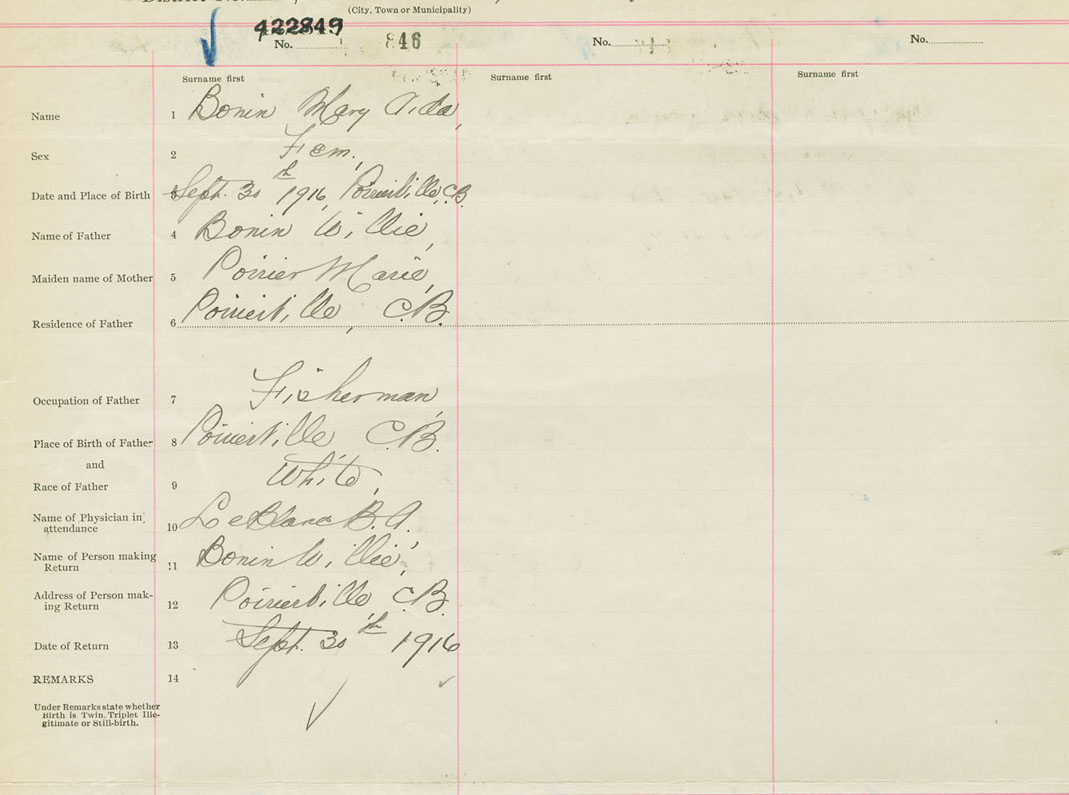 District No.
(City, Town or Municipality)
422849
No. 846 No. No.
Surname first Surname first Surname first
Name 1 Bonin Mary Aida,
Sex 2 Fem,
Date and Place of Birth 3 Sept. 30th 1916, Poirierville, C.B.
Name of Father 4 Bonin Willie,
Maiden name of Mother 5 Poirier Marie,
Residence of Father 6 Poirierville, C.B.
Occupation of Father 7 Fisherman,
Place of Birth of Father 8 Poirierville C.B.
and
Race of Father 9 White,
Name of Physician in
attendance 10 LeBlanc B.A.,
Name of Person making
Return 11 Bonin Willie,
Address of Person mak-
ing Return 12 Poirierville, C.B.
Date of Return 13 Sept. 30th 1916
REMARKS 14
Under Remarks state whether
Birth is Twin, Triplet Ille-
gitimate or Still-birth.